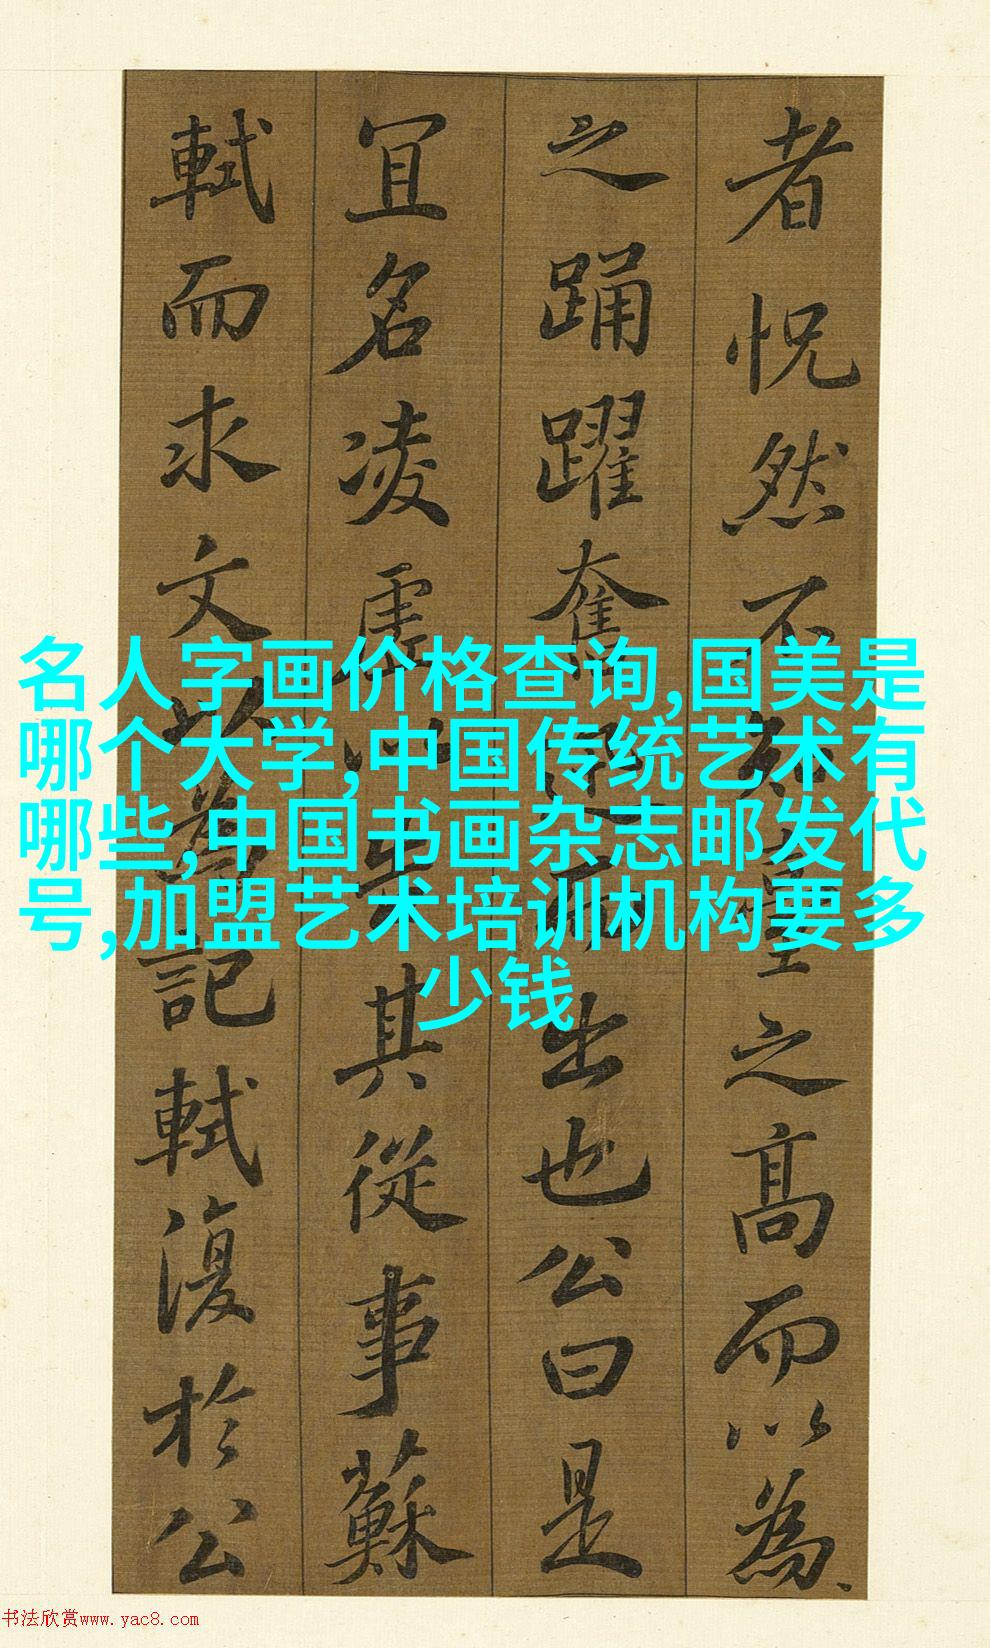 者怳然不知臺之髙而以為
之踊躍奮迅而出也公曰是
冝名凌虛以告其從事蘇
軾而求文以為記軾復於公
名人字画价格查询,国美是
哪个大学,中国传统艺术有
哪些,中国书画杂志邮发代
号,加盟艺术培训机构要多
少钱
书法欣赏www.yac8.com